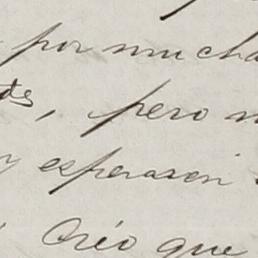 por mucha
, pero
y esperasen
Créo que